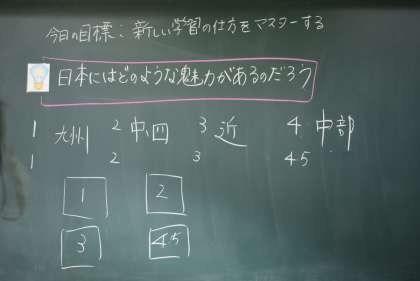 今日の目標：新しい学習の仕方をマスターする
日本にはどのような魅力があるのだろう
1 九州 2 中四 3 近 4 中部
1 2 3 45
1 2
3 45